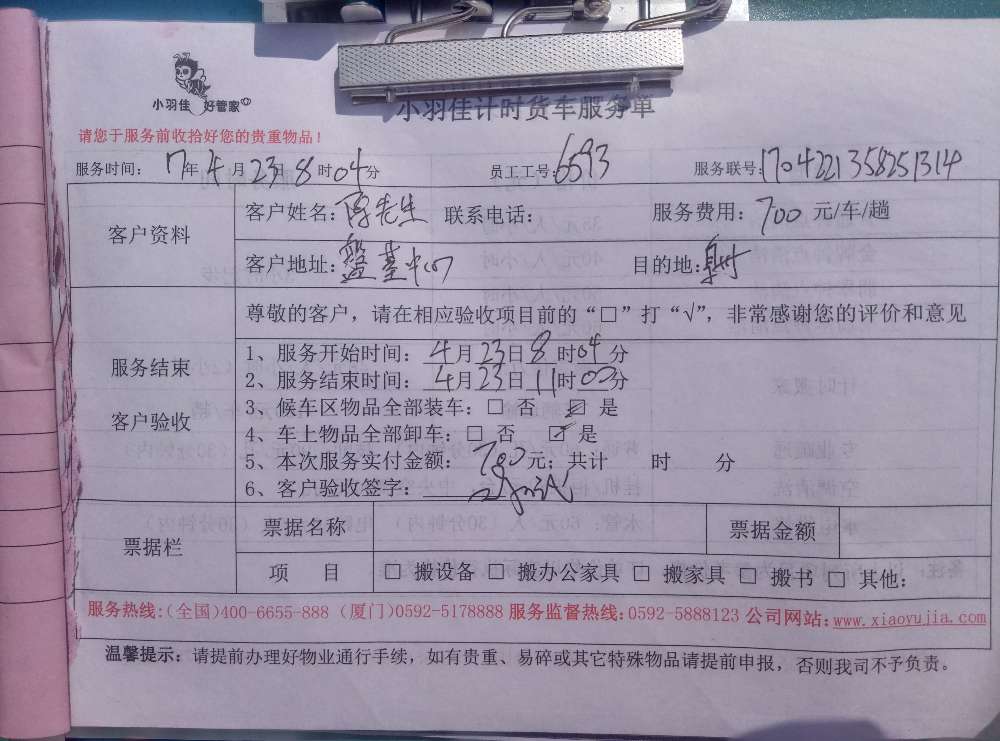 小羽佳 好管家
小羽佳计时货车服务单
请您于服务前收拾好您的贵重物品！
服务时间： 17年 4月 23日 8时 04分 员工工号：6593 服务联号：1704221358251314
客户资料
客户姓名：陈先生 联系电话： 服务费用：700 元/车/趟
客户地址：磐基中心 目的地：
服务结束
客户验收
尊敬的客户，请在相应验收项目前的“□”打“√”，非常感谢您的评价和意见
1、服务开始时间：4月23日8时04分
2、服务结束时间：4月23日11时00分
3、候车区物品全部装车：□ 否 ☑ 是
4、车上物品全部卸车：□ 否 ☑ 是
5、本次服务实付金额：700元；共计 时 分
6、客户验收签字：
票据栏
票据名称 票据金额
项 目 □ 搬设备 □ 搬办公家具 □ 搬家具 □ 搬书 □ 其他：
服务热线：(全国)400-6655-888 (厦门)0592-5178888 服务监督热线：0592-5888123 公司网站：www.xiaoyujia.com
温馨提示：请提前办理好物业通行手续，如有贵重、易碎或其它特殊物品请提前申报，否则我司不予负责。